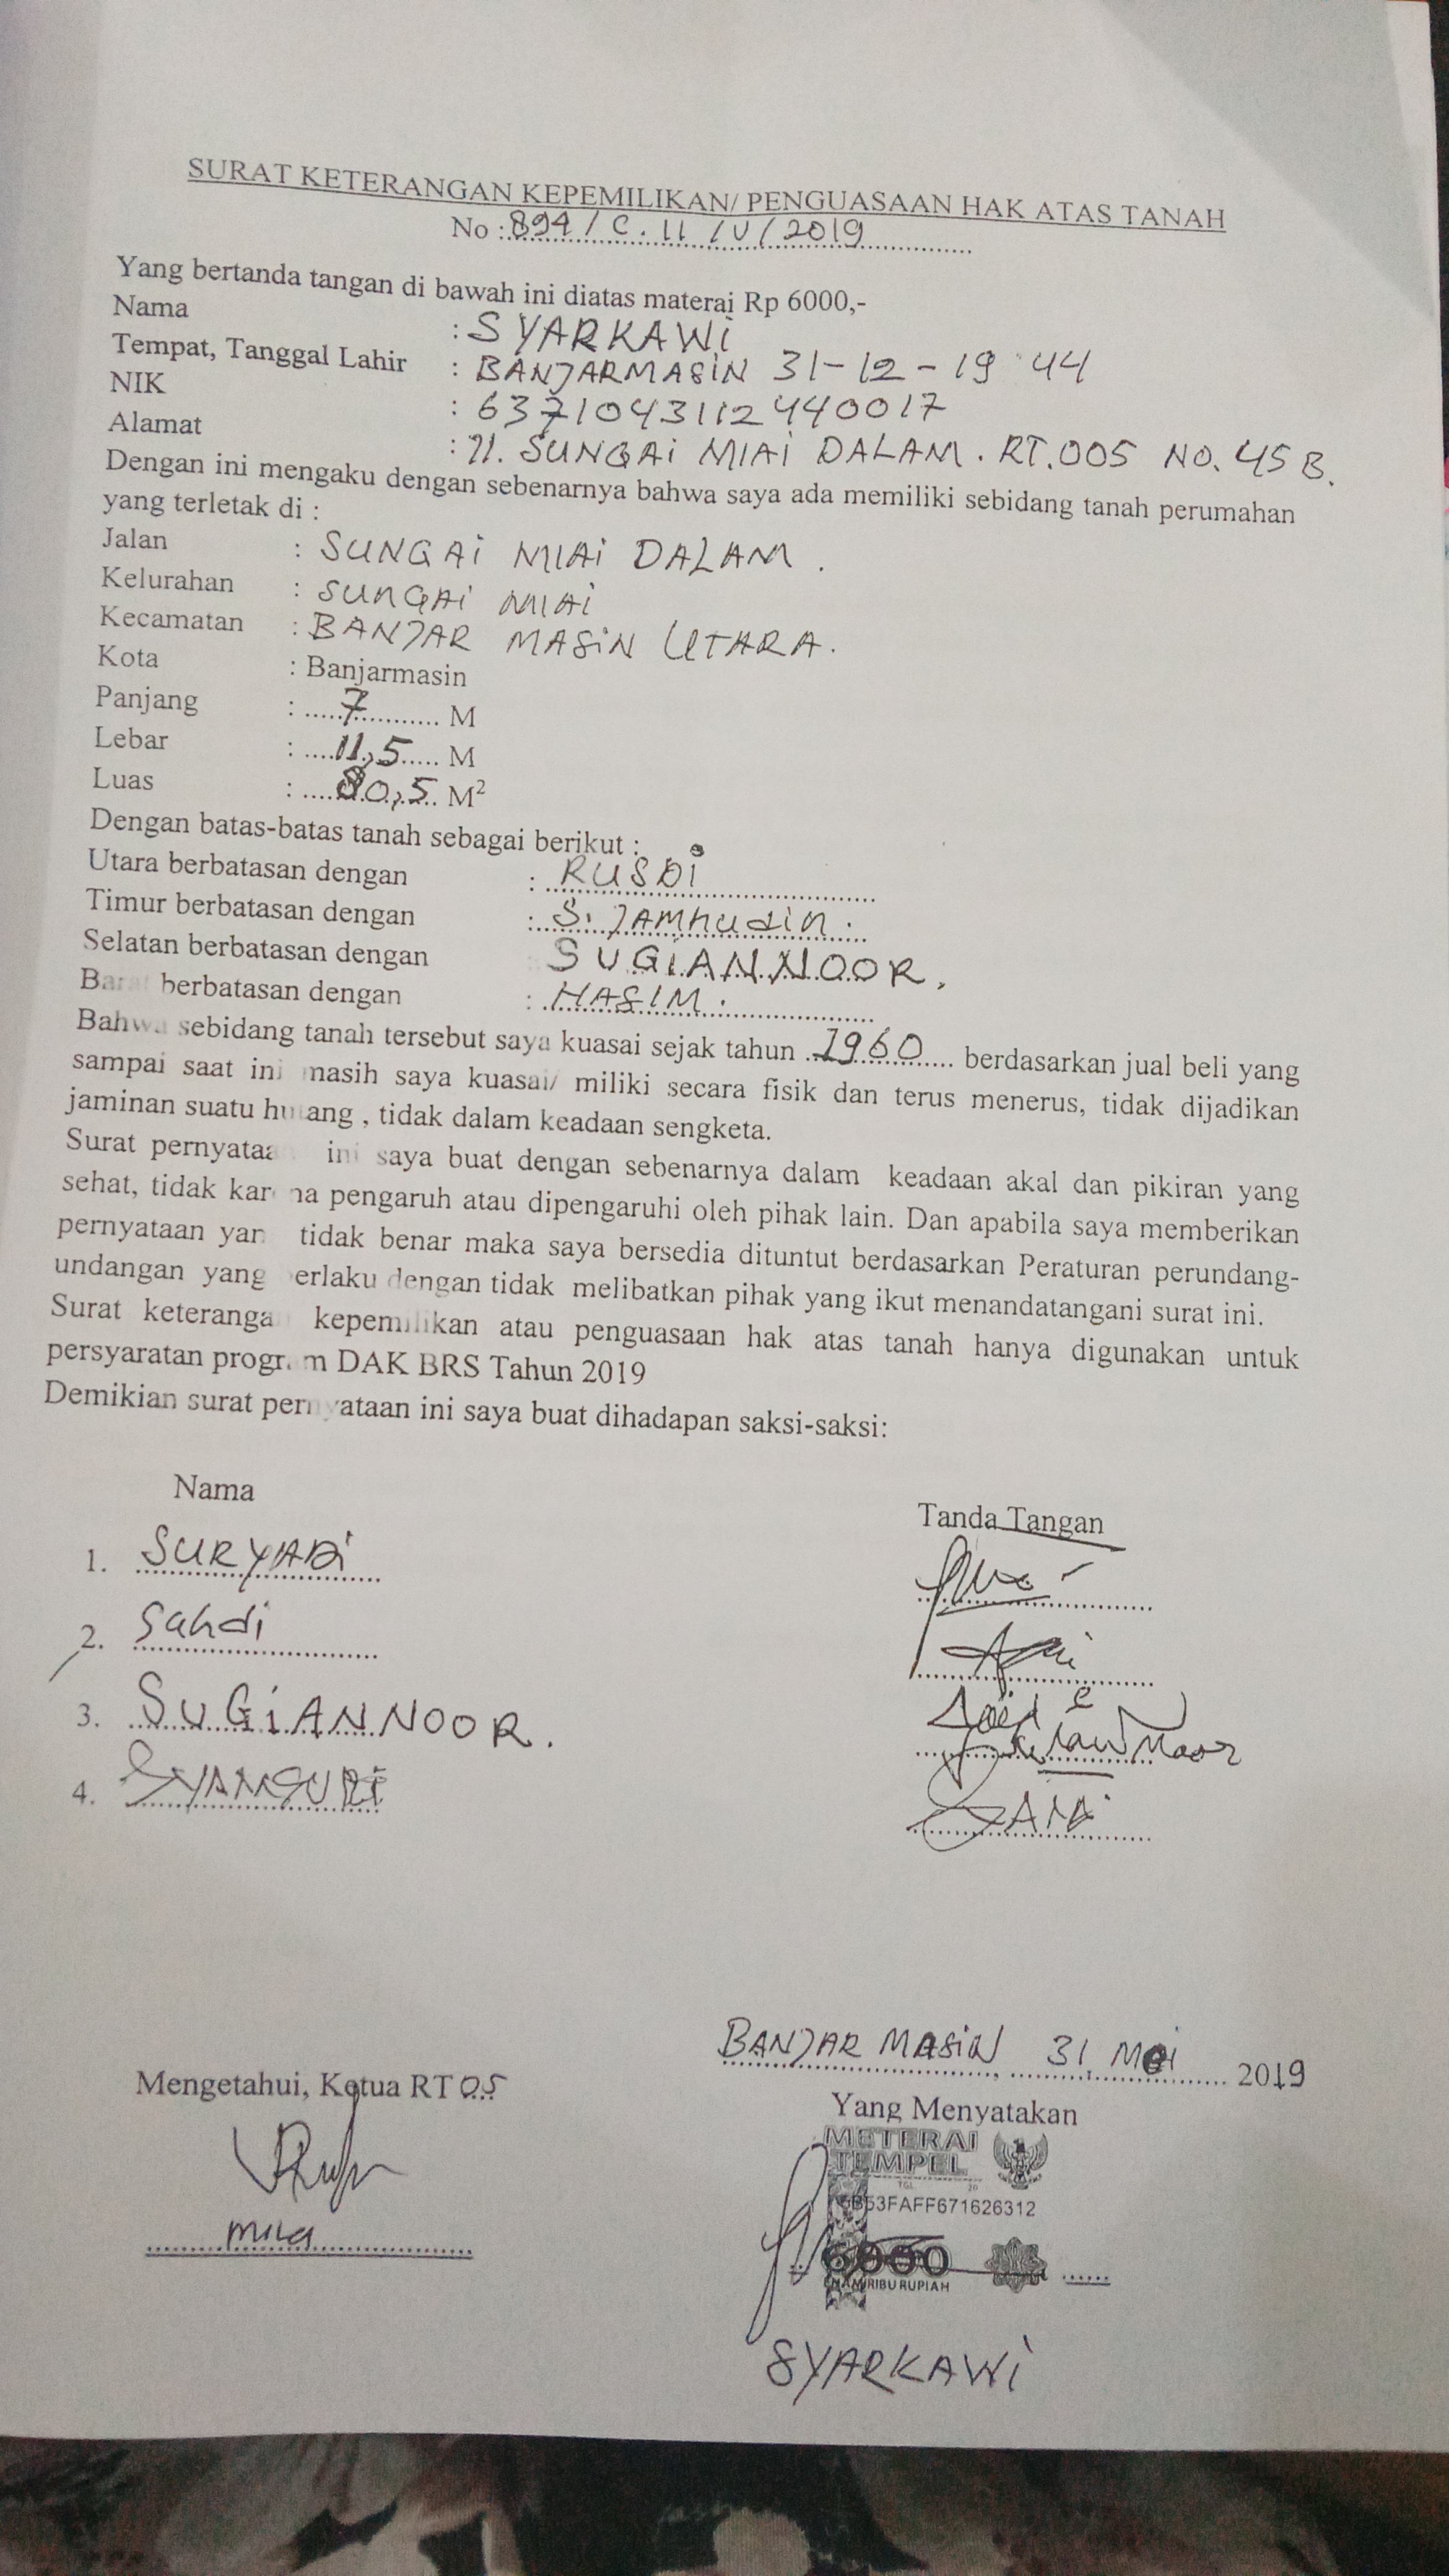 SURAT KETERANGAN KEPEMILIKAN/ PENGUASAAN HAK ATAS TANAH
No : 894 / C. II / V / 2019
Yang bertanda tangan di bawah ini diatas materai Rp 6000,-
Nama : SYARKAWI
Tempat, Tanggal Lahir : BANJARMASIN 31-12-19 44
NIK : 6371043112440017
Alamat : Jl. SUNGAI MIAI DALAM. RT.005 NO. 45 B.
Dengan ini mengaku dengan sebenarnya bahwa saya ada memiliki sebidang tanah perumahan
yang terletak di :
Jalan : SUNGAI MIAI DALAM.
Kelurahan : SUNGAI MIAI
Kecamatan : BANJAR MASIN UTARA.
Kota : Banjarmasin
Panjang : 7 M
Lebar : 11,5 M
Luas : 80,5 M²
Dengan batas-batas tanah sebagai berikut :
Utara berbatasan dengan : RUSDI
Timur berbatasan dengan : S. JAMHUDIN.
Selatan berbatasan dengan SUGIANNOOR.
Barat berbatasan dengan : HASIM.
Bahwa sebidang tanah tersebut saya kuasai sejak tahun 1960 berdasarkan jual beli yang
sampai saat ini masih saya kuasai/ miliki secara fisik dan terus menerus, tidak dijadikan
jaminan suatu hutang , tidak dalam keadaan sengketa.
Surat pernyataan ini saya buat dengan sebenarnya dalam keadaan akal dan pikiran yang
sehat, tidak karena pengaruh atau dipengaruhi oleh pihak lain. Dan apabila saya memberikan
pernyataan yang tidak benar maka saya bersedia dituntut berdasarkan Peraturan perundang-
undangan yang berlaku dengan tidak melibatkan pihak yang ikut menandatangani surat ini.
Surat keterangan kepemilikan atau penguasaan hak atas tanah hanya digunakan untuk
persyaratan program DAK BRS Tahun 2019
Demikian surat pernyataan ini saya buat dihadapan saksi-saksi:
Nama Tanda Tangan
1. SURYADI
2. Sahdi
3. SUGIANNOOR.
4. SYAMSURI
BANJAR MASIN, 31 MEI 2019
Mengetahui, Ketua RT 05
Yang Menyatakan
METERAI
TEMPEL
TGL 20
B53FAFF671626312
6000
ENAM RIBU RUPIAH
SYARKAWI